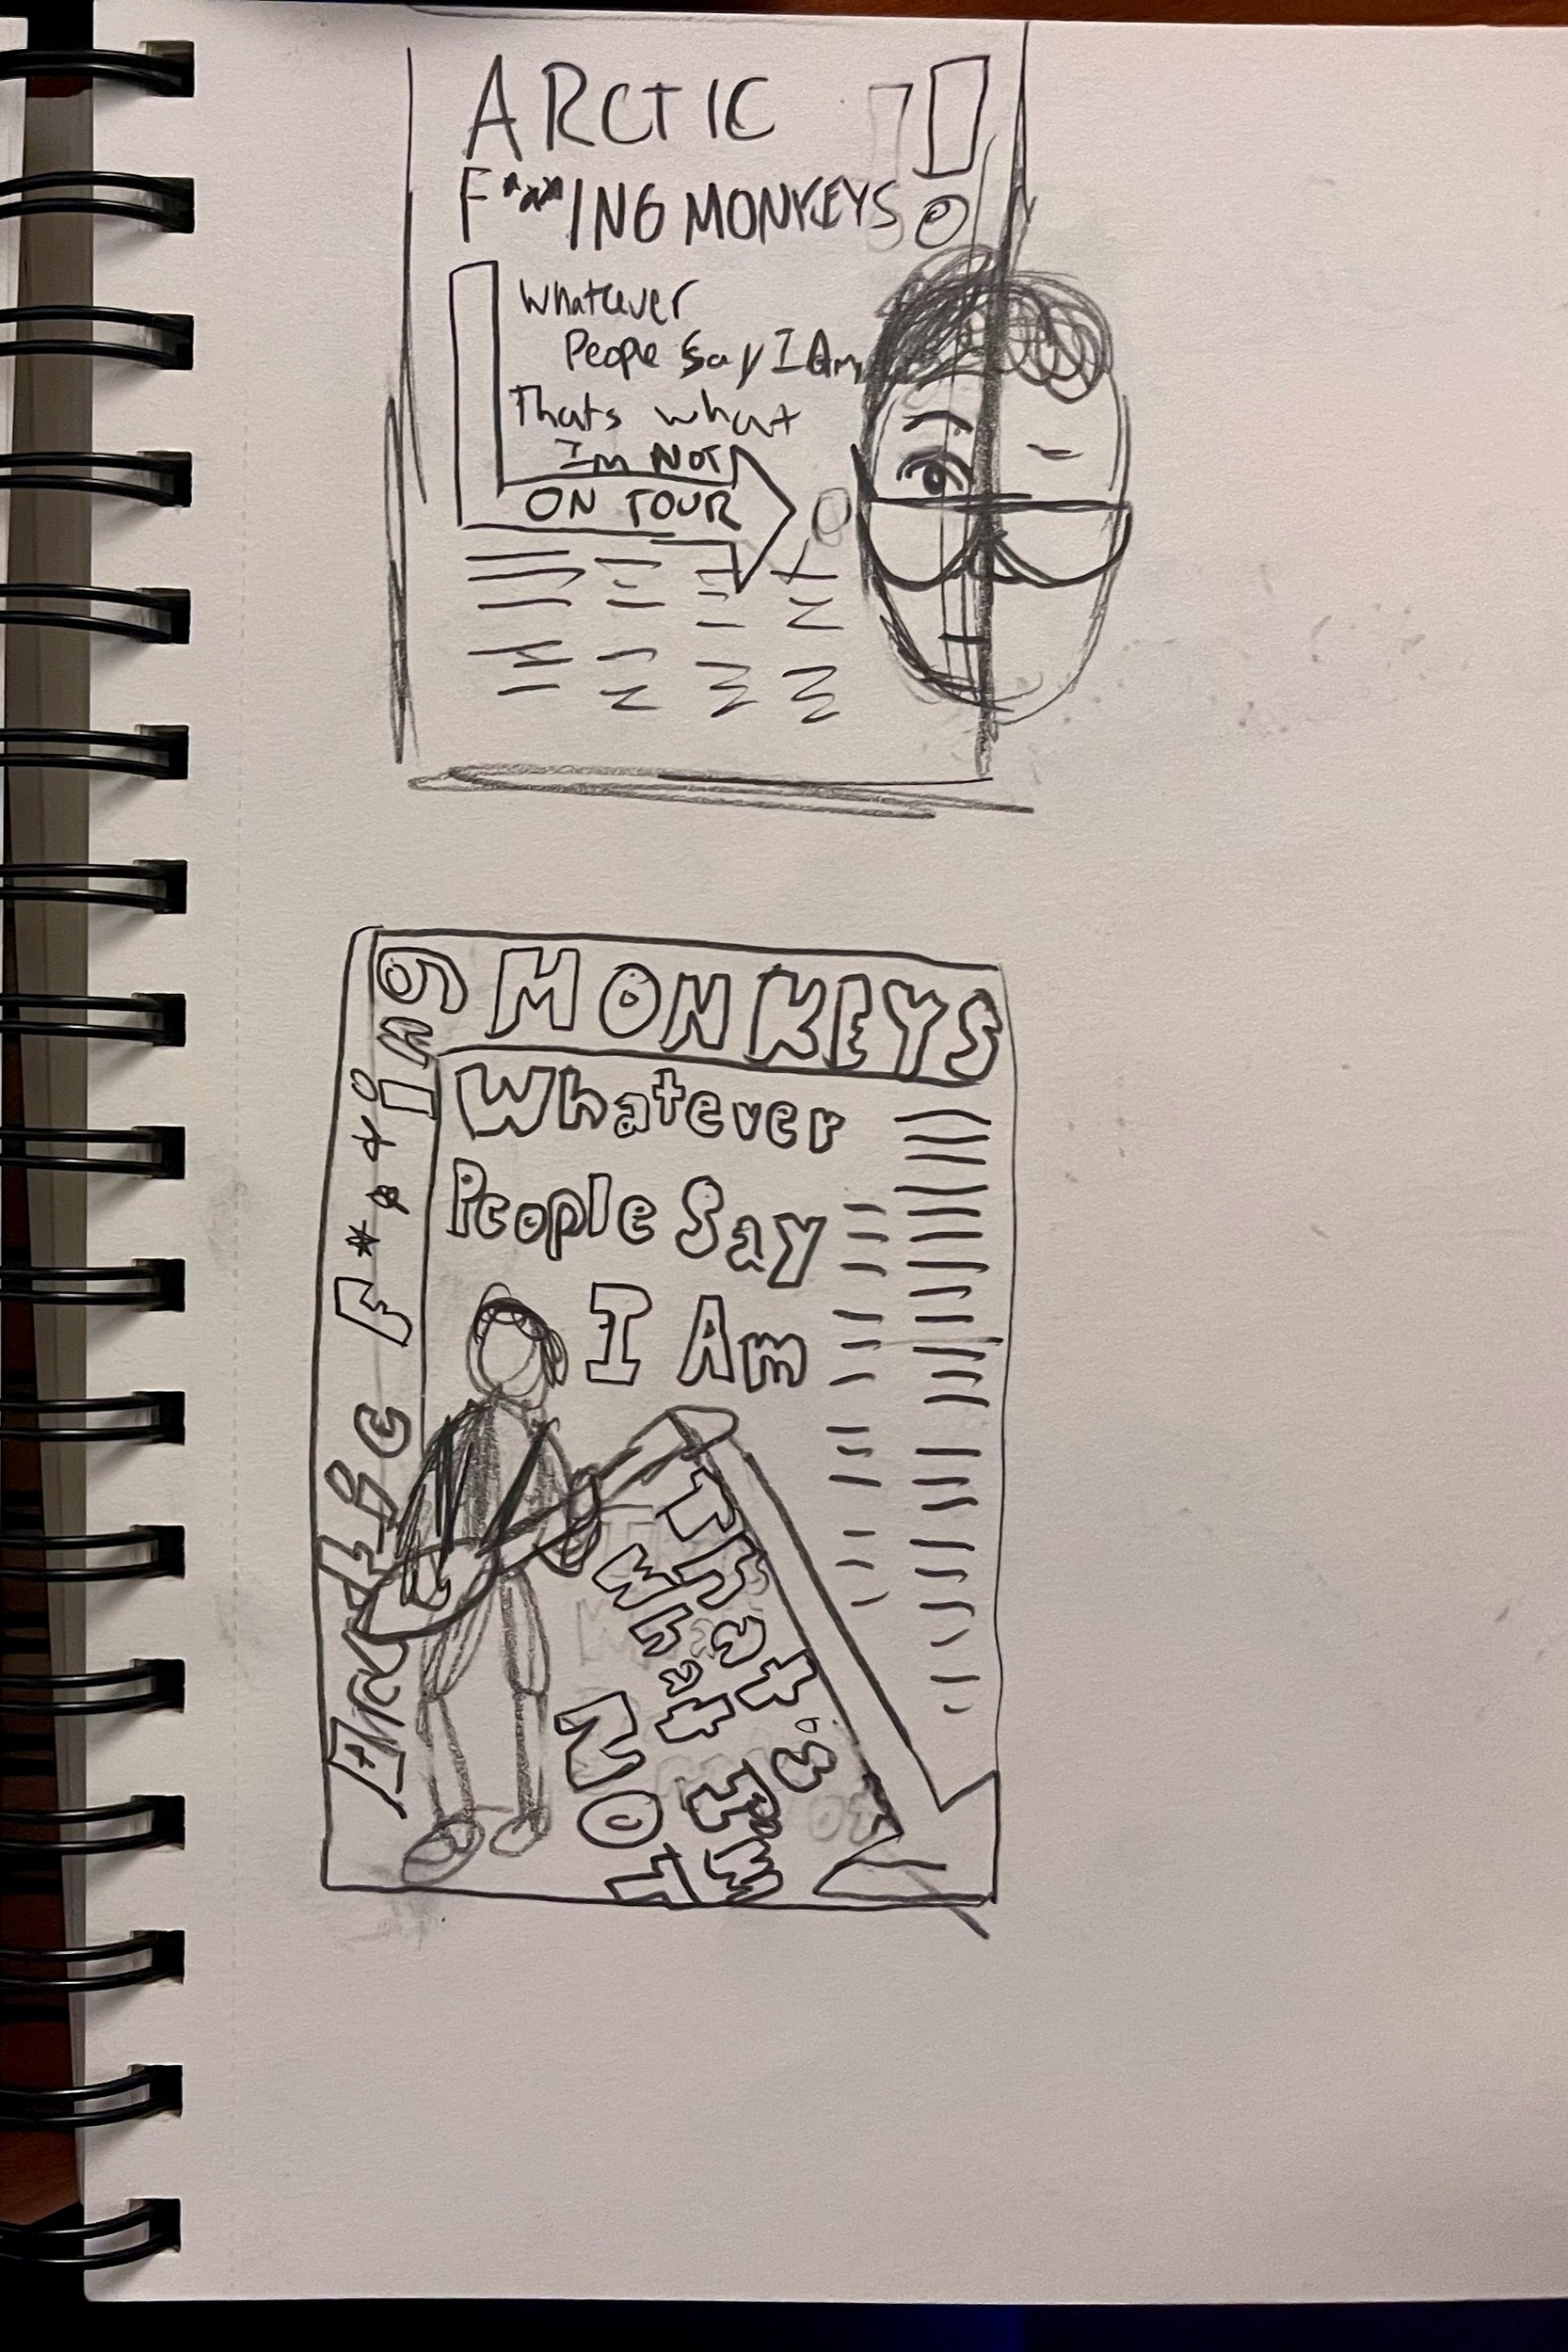 ARCTIC
F***ING MONKEYS!
Whatever
People Say I Am,
Thats what
Im NOT
ON TOUR
Arctic F***ing
MONKEYS
Whatever
People Say
I Am
That's
What I'm
NOT